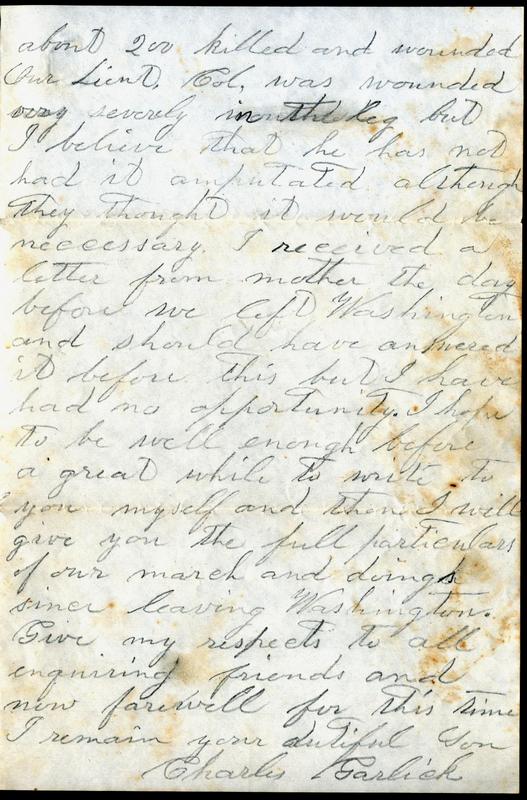 about 200 killed and wounded
Our Lieut, Col, was wounded
very severly in the leg but
I believe that he has not
had it amputated although
they thought it would be
neccessary. I received a
letter from mother the day
before we left Washington
and should have answered
it before this but I have
had no opportunity. I hope
to be well enough before
a great while to write to
you myself and then I will
give you the full particulars
of our march and doings
since leaving Washington.
Give my respects to all
enquiring friends and
now farewell for this time
I remain your dutiful Son
Charlis Garlick